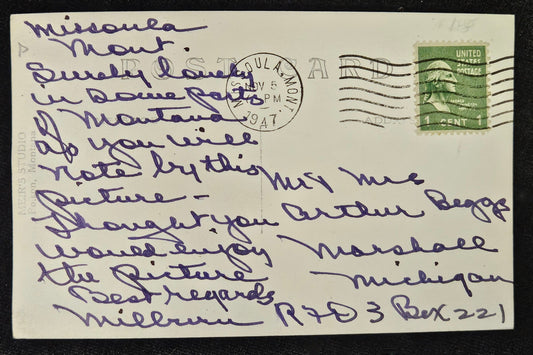 Missoula
Mont.
Surely lovely
in some parts
of Montana
as you will
note by this
picture -
Thought you
would enjoy
the picture
Best regards
Milburn
POST CARD
MISSOULA, MONT.
NOV 5
PM
1947
A
UNITED
STATES
POSTAGE
1 CENT 1
Mr & Mrs
Arthur Beggs
Marshall
Michigan
RFD 3 Box 221
MEIR'S STUDIO
Montana